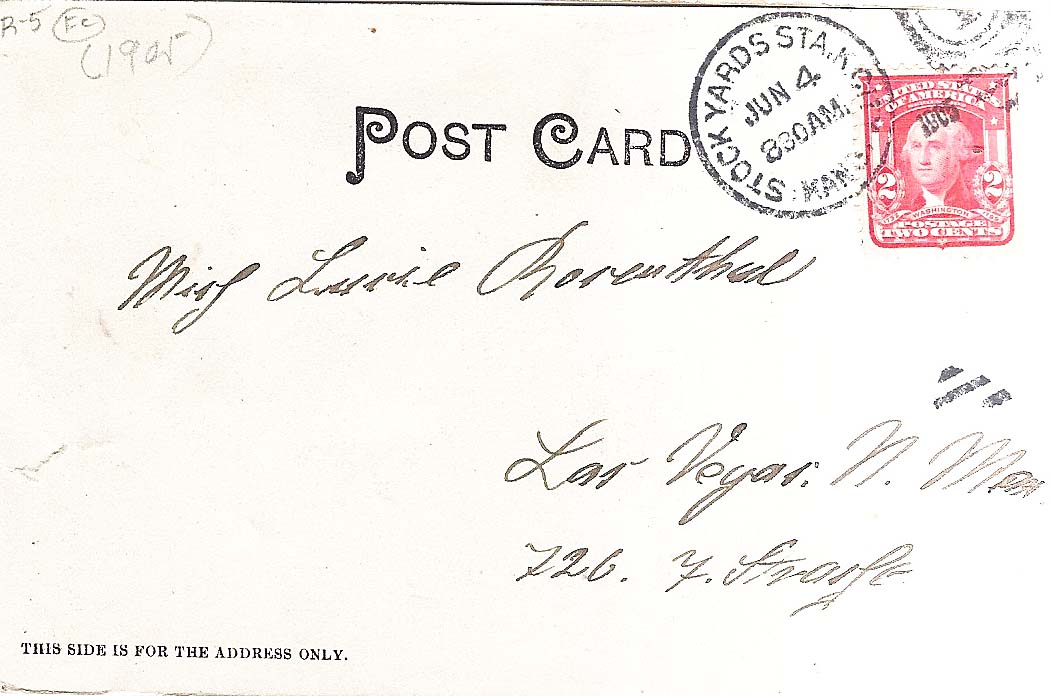 R-5 Fc
(1905)
POST CARD
STOCK YARDS STA. K.C.
JUN 4
830AM.
KANS.
1905
UNITED STATES
OF AMERICA
2 2
1732 WASHINGTON 1799
POSTAGE
TWO CENTS
Miss Lucie Rosenthal
Las Vegas. N. Mex
726. 7. Straße
THIS SIDE IS FOR THE ADDRESS ONLY.